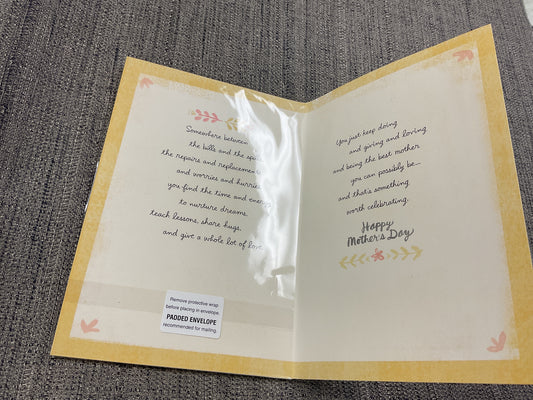 Somewhere between
the bills and the
the repairs and replacements
and worries and hurries,
you find the time and energy
to nurture dreams,
teach lessons, share hugs,
and give a whole lot of love.
Remove protective wrap
before placing in envelope.
PADDED ENVELOPE
recommended for mailing.
You just keep doing
and giving and loving
and being the best mother
you can possibly be...
and that's something
worth celebrating.
Happy
Mother's Day